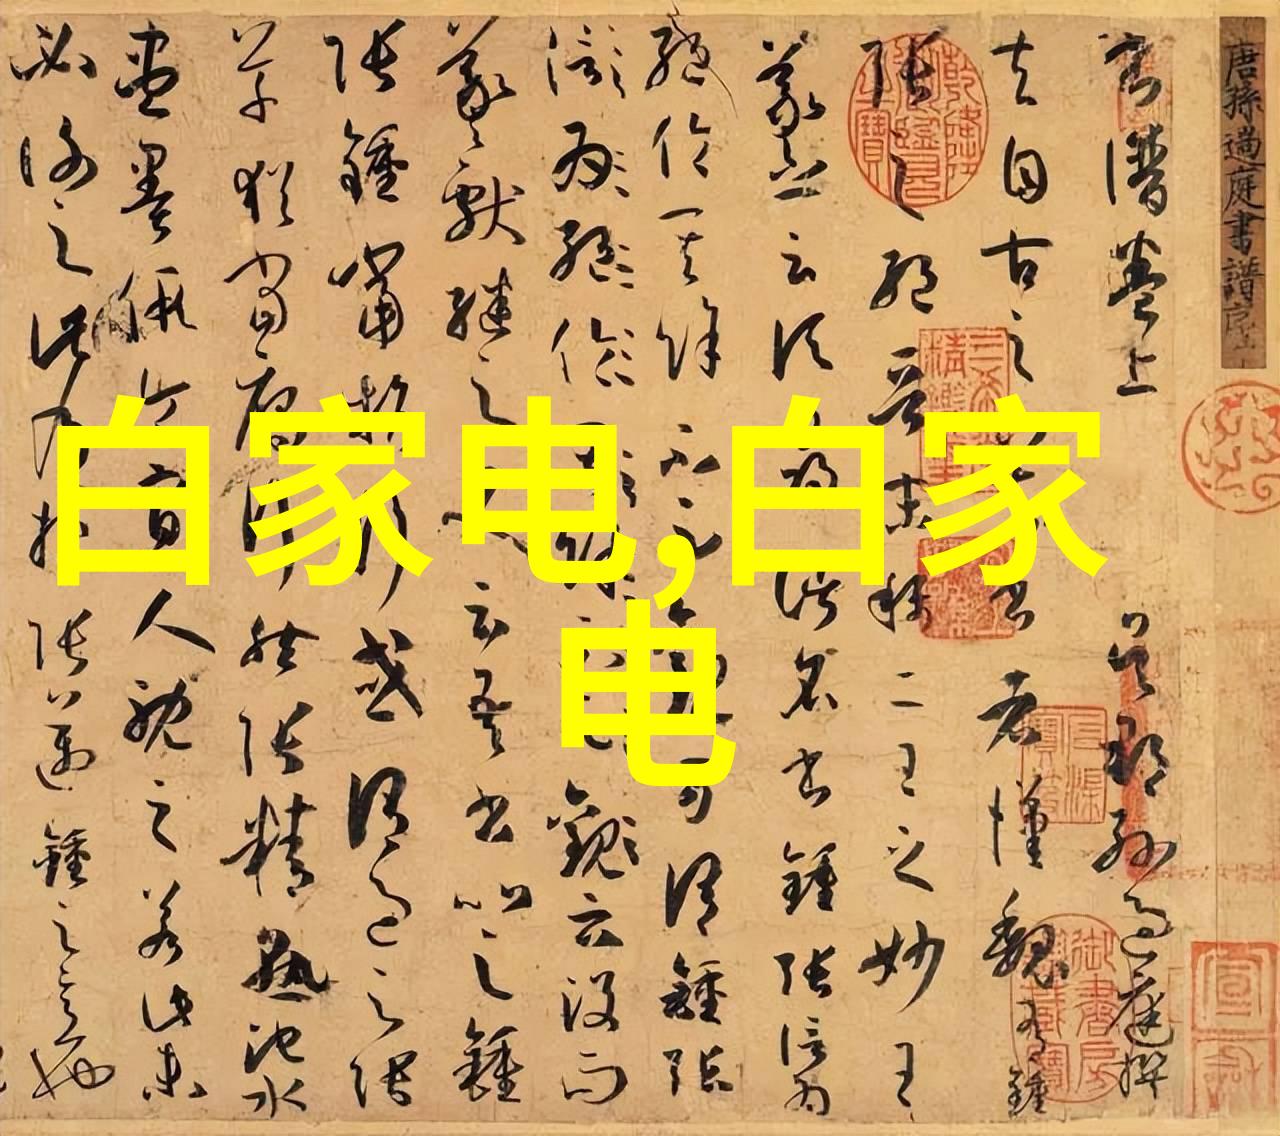 白家电,白家
电
唐孫過庭書譜序上
書譜卷上 吳郡孫過庭撰
夫自古之善書者漢魏有鍾
張之絕晉末稱二王之妙王
羲之云頃尋諸名書鍾張信為
絕倫其餘不足觀可謂鍾張
云沒而
羲獻繼之又云吾書比之鍾
張鍾當抗行或謂過之張
草猶當雁行然張精熟池水
盡墨假令寡人耽之若此未
必後之此乃推張邁鍾之意也